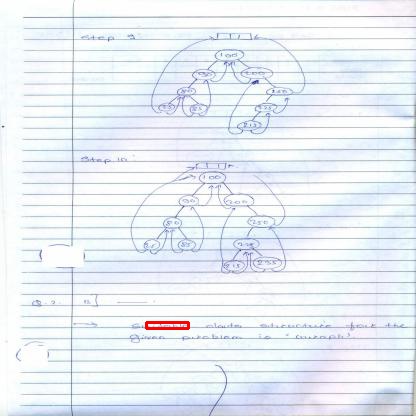 Step 9:
100
90 200
80 250
225
215
Step 10:
100
90 200
80 250
85
215 235
Q.2. B]
data structure for the
given problem is "Graph".